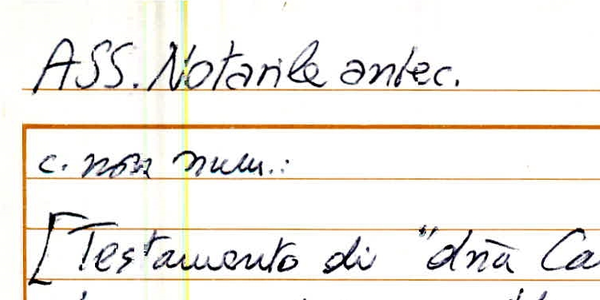 ASS. Notarile antec.
c. non num.:
[Testamento di "dña Ca